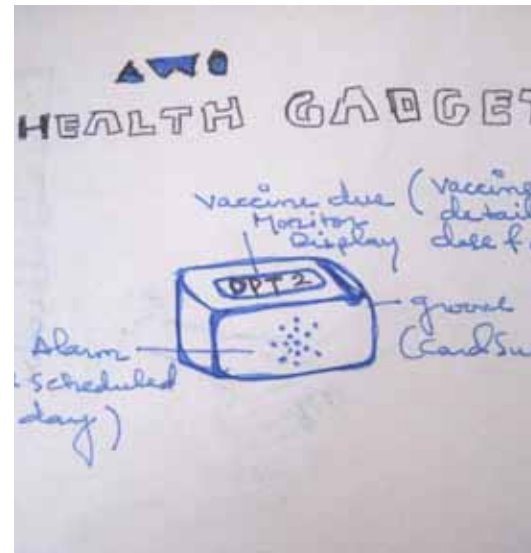 AWO
HEALTH GADGET
Vaccine due
Monitor
Display
(Vaccine
detail
dose
DPT 2
groove
(Card
Alarm
scheduled
day)